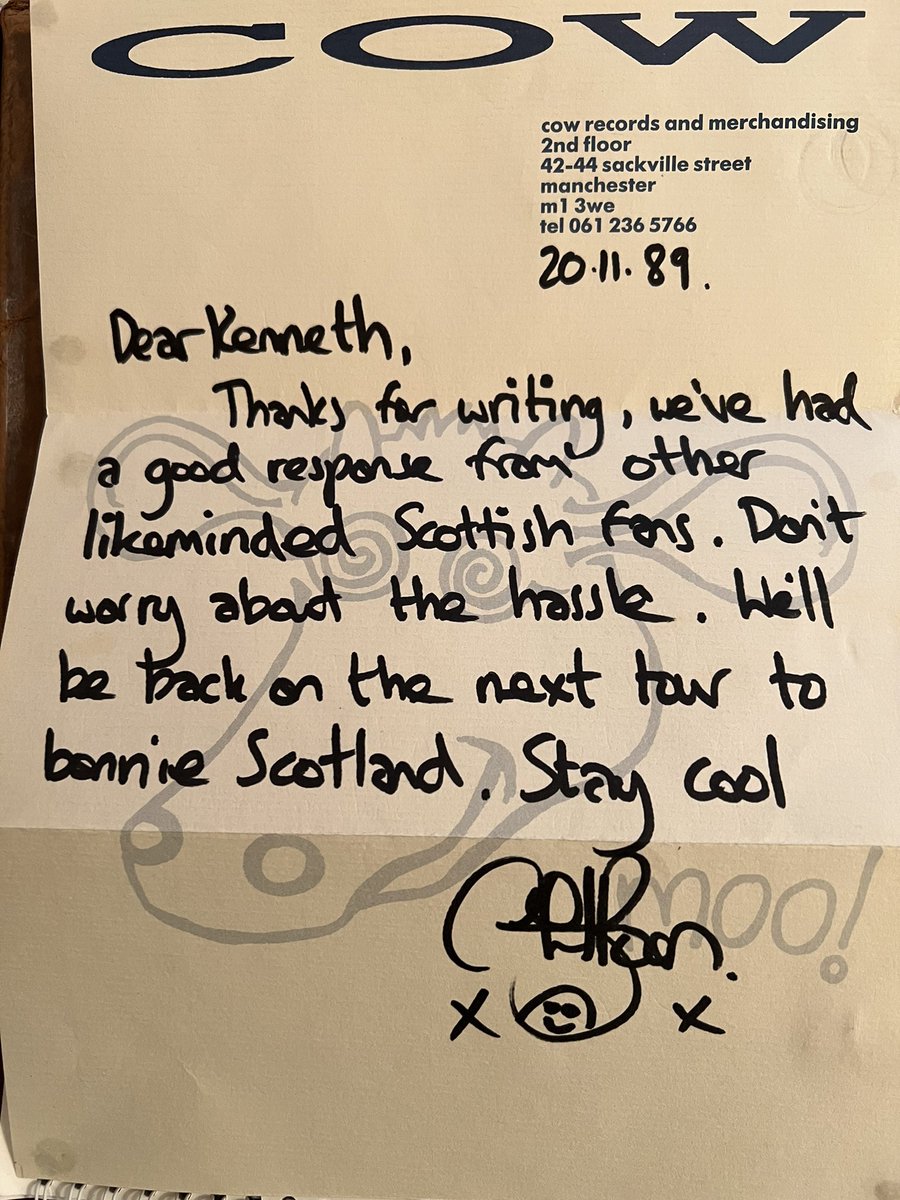 COW
cow records and merchandising
2nd floor
42-44 sackville street
manchester
m1 3we
tel 061 236 5766
20.11.89.
Dear Kenneth,
Thanks for writing, we've had
a good response from other
likeminded Scottish fans. Don't
worry about the hassle. We'll
be back on the next tour to
bonnie Scotland. Stay cool
moo!
x x